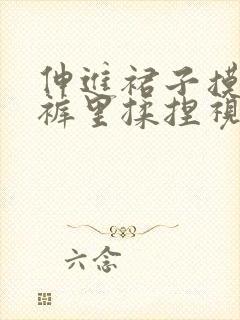 伸进裙子摸
裤里揉捏视
六念